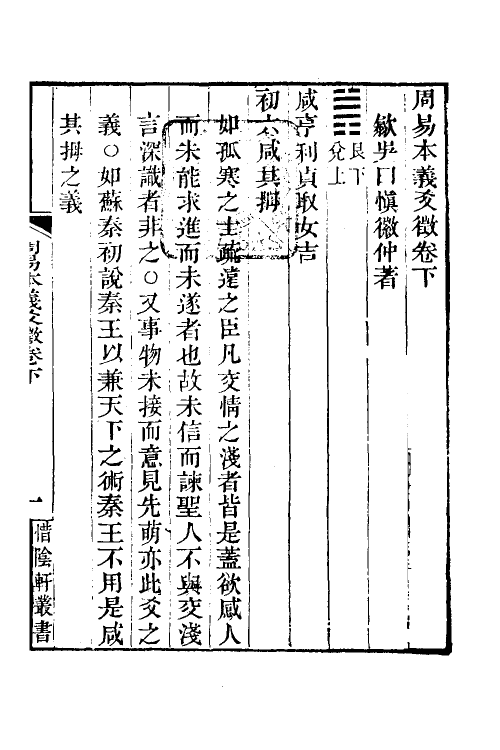 周易本義爻徵卷下
歙吳曰慎徽仲著
艮下
兌上
咸亨利貞取女吉
初六咸其拇
如孤寒之士疏遠之臣凡交情之淺者皆是蓋欲咸人
而未能求進而未遂者也故未信而諫聖人不與交淺
言深識者非之○又事物未接而意見先萌亦此爻之
義○如蘇秦初說秦王以兼天下之術秦王不用是咸
其拇之義
周易本義爻徵卷下
一
惜陰軒叢書